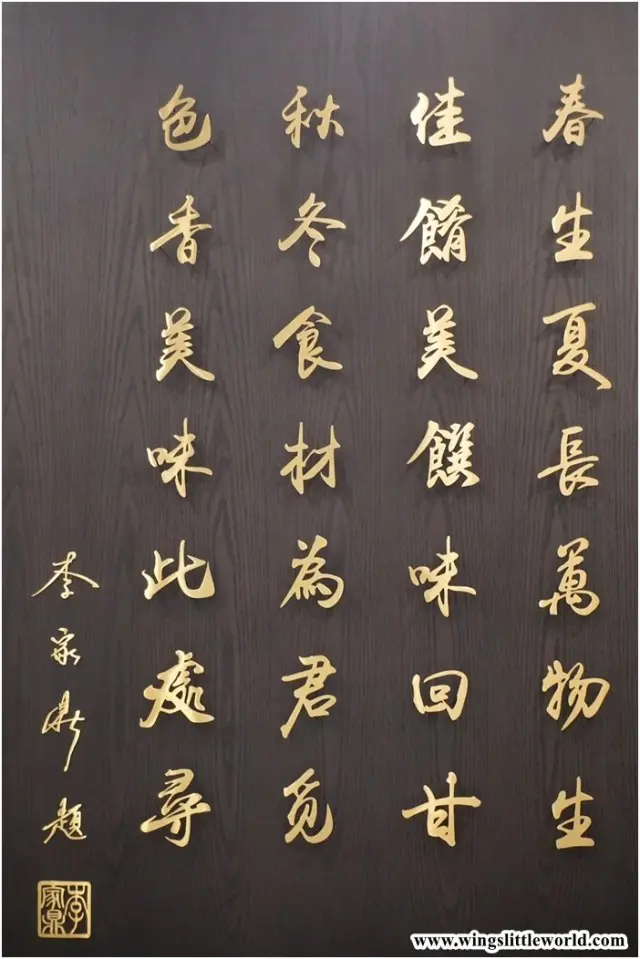 春生夏長萬物生
佳餚美饌味回甘
秋冬食材為君覓
色香美味此處尋
李家鼎題
李家鼎
www.wingslittleworld.com